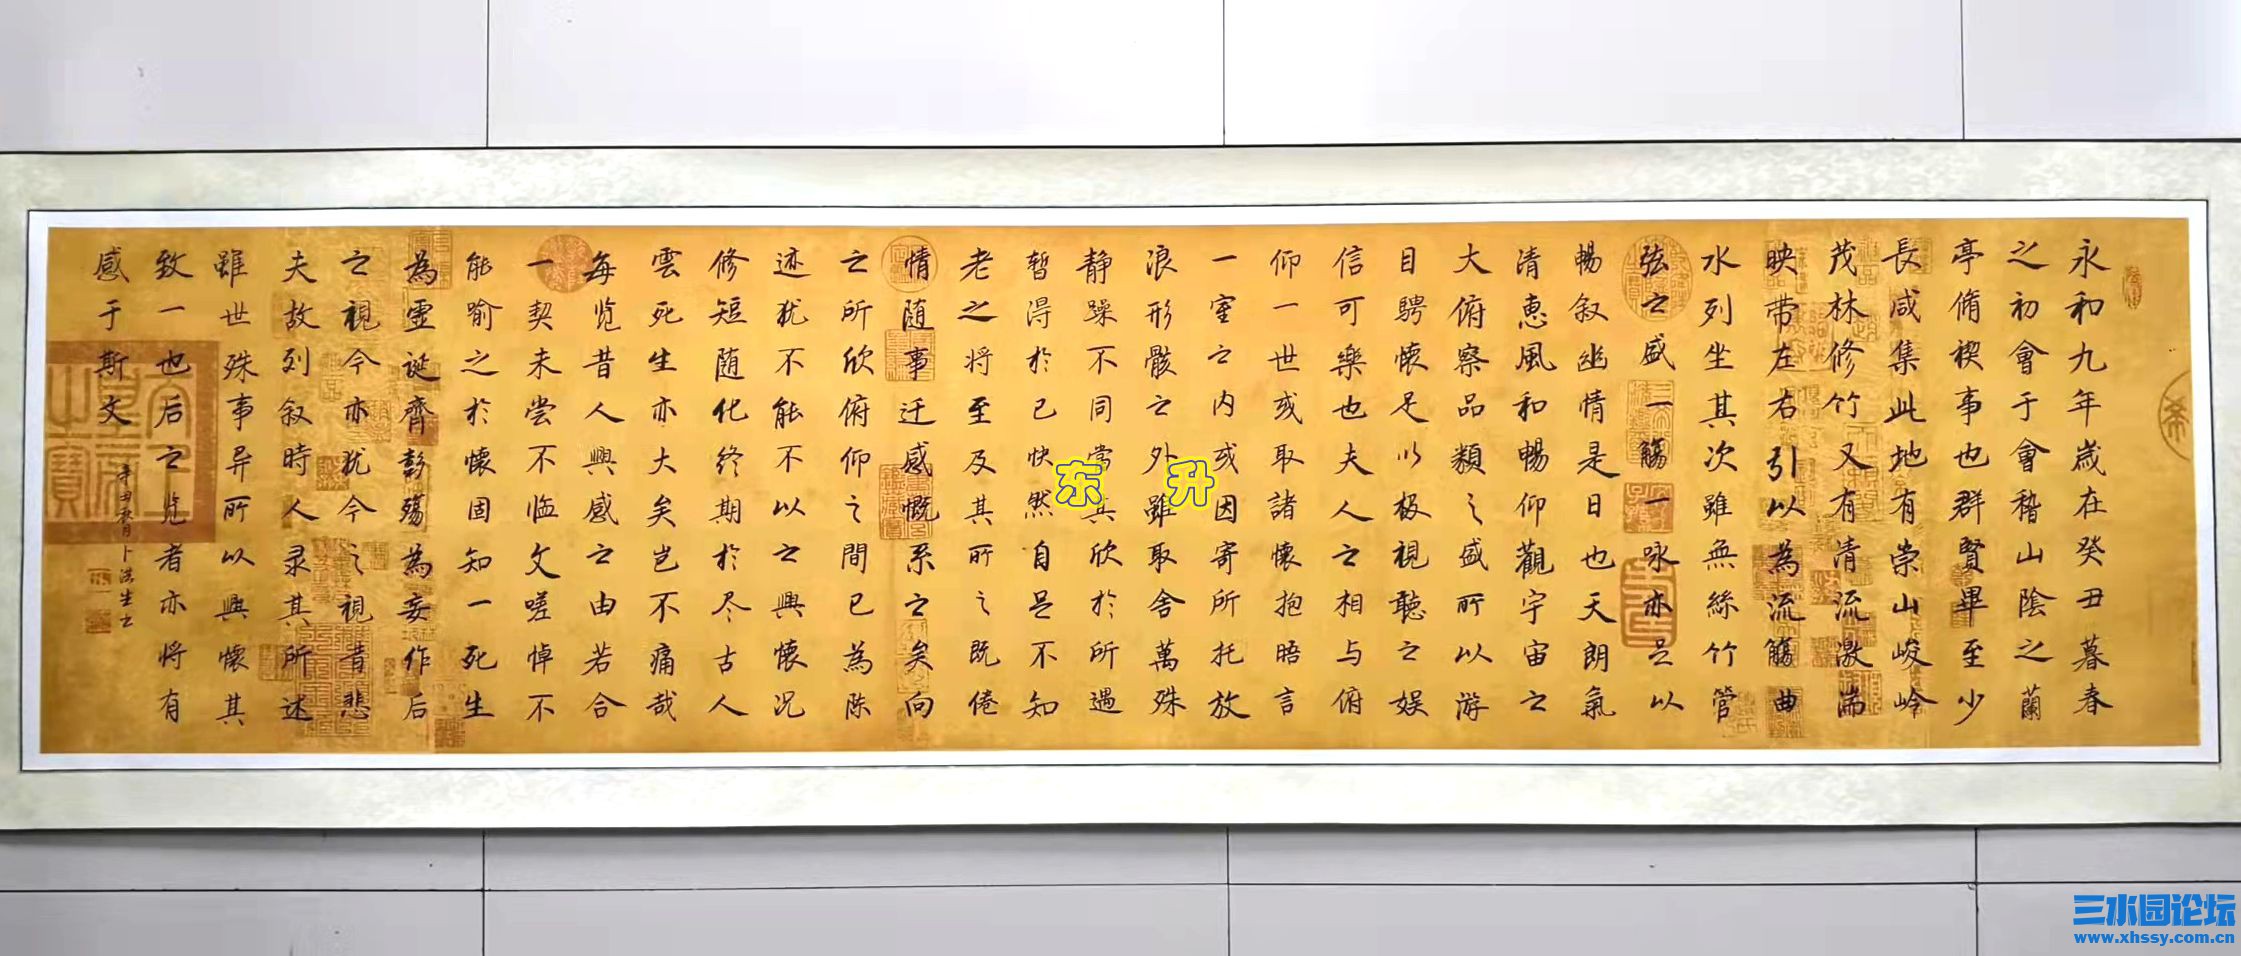 永和九年歲在癸丑暮春
之初會于會稽山陰之蘭
亭脩禊事也群賢畢至少
長咸集此地有崇山峻岭
茂林修竹又有清流激湍
映带左右引以為流觴曲
水列坐其次雖無絲竹管
弦之盛一觴一咏亦足以
暢叙幽情是日也天朗氣
清惠風和暢仰觀宇宙之
大俯察品類之盛所以游
目騁懷足以极視聽之娱
信可樂也夫人之相与俯
仰一世或取諸懷抱晤言
一室之内或因寄所托放
浪形骸之外雖取舍萬殊
静躁不同當其欣於所遇
暫得於己快然自足不知
老之将至及其所之既倦
情随事迁感慨系之矣向
之所欣俯仰之間已為陈
迹犹不能不以之興懷况
修短随化终期於尽古人
雲死生亦大矣岂不痛哉
每览昔人興感之由若合
一契未尝不临文嗟悼不
能喻之於懷固知一死生
為虚诞齊彭殤為妄作后
之視今亦犹今之視昔悲
夫故列叙時人录其所述
雖世殊事异所以興懷其
致一也后之览者亦将有
感于斯文
辛丑 月卜洪生书
东 升
三水园论坛
www.xhssy.com.cn